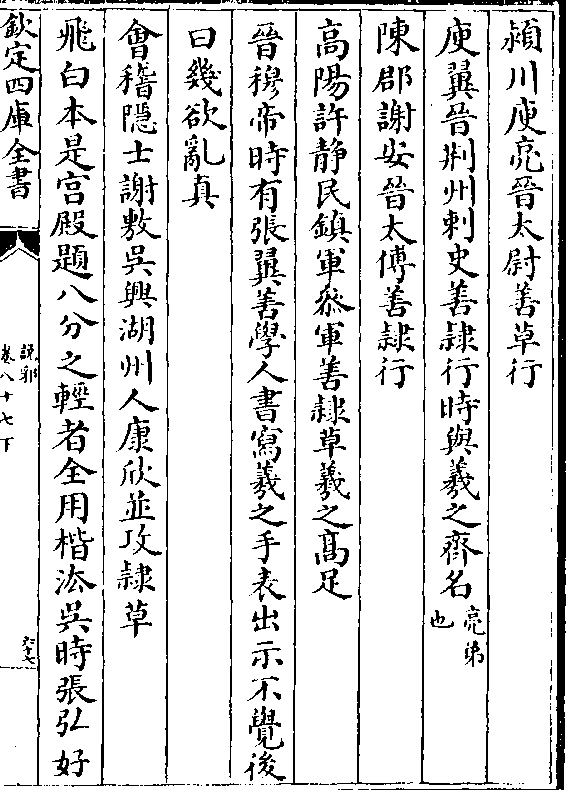 潁川庾亮晉太尉善草行
庾翼晉荆州刺史善隷行時與羲之齊名亮弟也
陳郡謝安晉太傅善隷行
高陽許静民鎮軍叅軍善隷草羲之髙足
晉穆帝時有張翼善學人書寫羲之手表出示不覺後
曰幾欲亂真
會稽隠士謝敷吳興湖州人康欣並攻隷草
飛白本是宫殿題八分之輕者全用楷法吳時張弘好
欽定四庫全書
說郛
卷八十七下